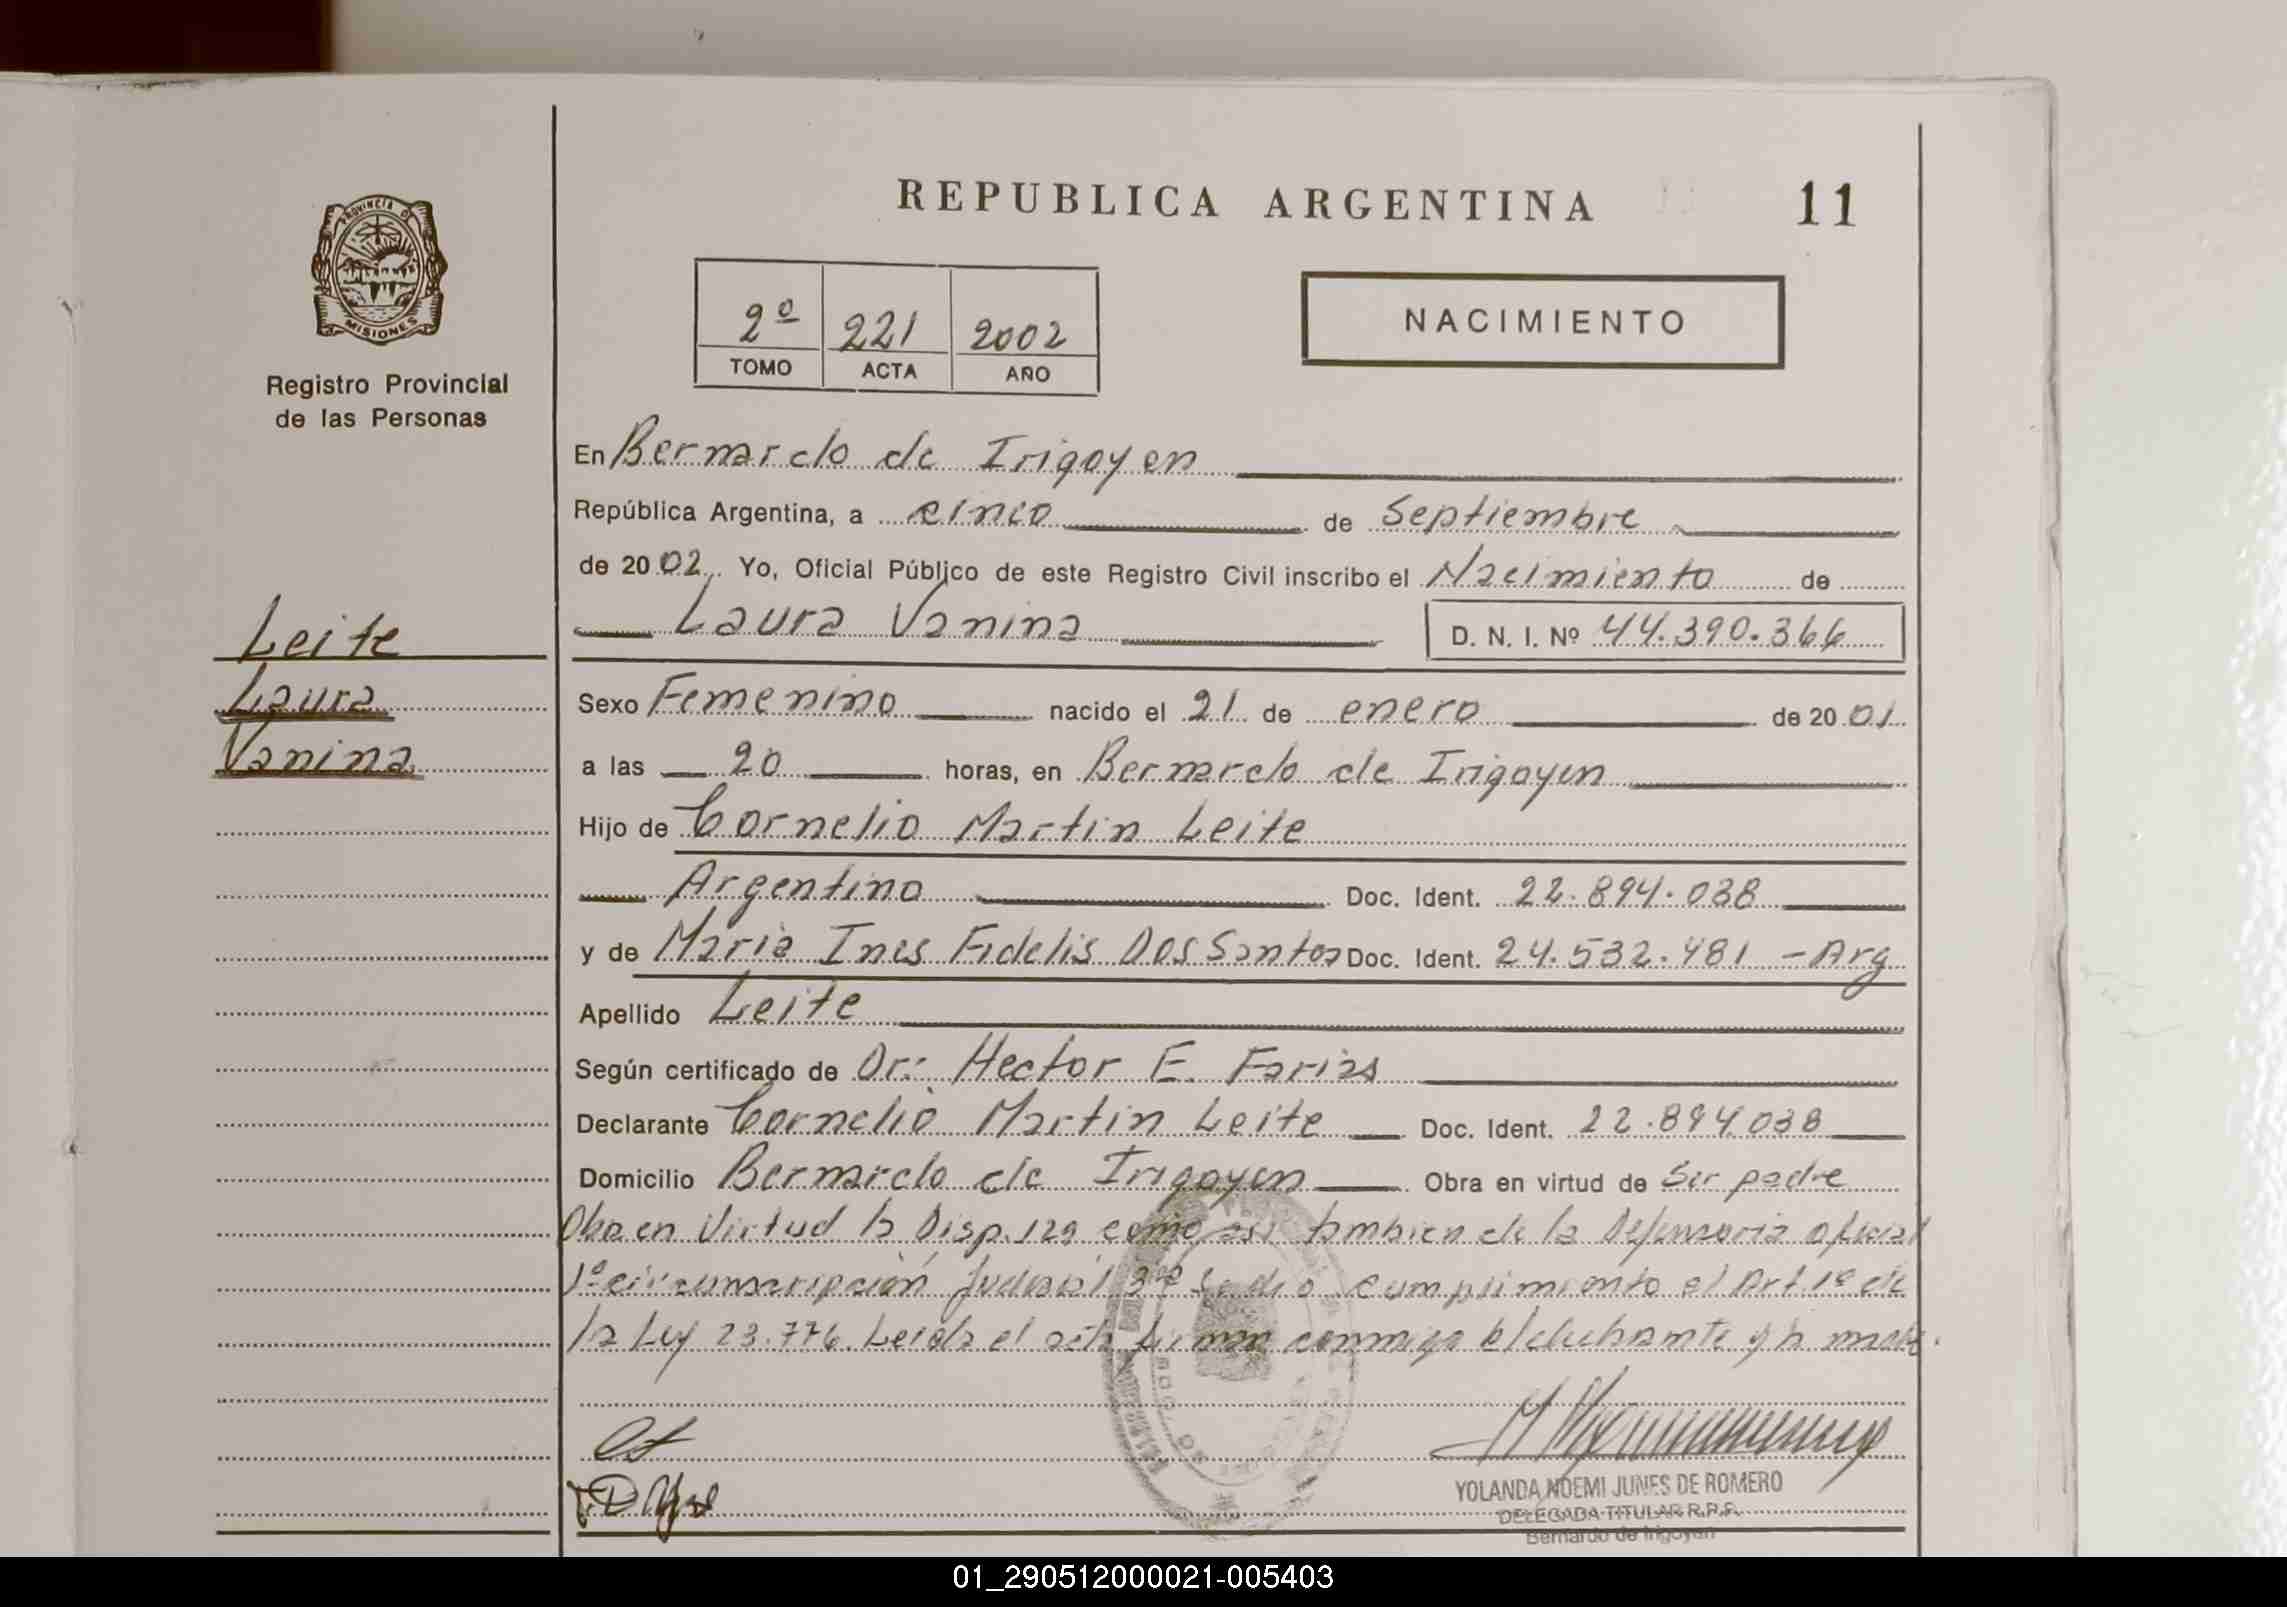 REPUBLICA ARGENTINA
11
PROVINCIA DE
MISIONES
Registro Provincial
de las Personas
2º 221 2002
TOMO ACTA AÑO
NACIMIENTO
En Bernardo de Irigoyen
República Argentina, a cinco de Septiembre
de 2002 Yo, Oficial Público de este Registro Civil inscribo el Nacimiento de
Laura Vanina D. N. I. Nº 44.390.366
Leite
Laura
Vanina
Sexo Femenino nacido el 21 de enero de 2001
a las 20 horas, en Bernardo de Irigoyen
Hijo de Cornelio Martin Leite
Argentino Doc. Ident. 22.894.038
y de Maria Ines Fidelis Dos Santos Doc. Ident. 24.532.481 - Arg
Apellido Leite
Según certificado de Dr: Hector E. Farias
Declarante Cornelio Martin Leite Doc. Ident. 22.894.038
Domicilio Bernardo de Irigoyen Obra en virtud de Ser padre
Obra en Virtud la Disp. 129 como asi tambien de la Defensoria oficial
1º circunscripción Judicial 3º cumplimiento el Art. 1º de
la Ley 23.776. Leida el acta firman conmigo el declarante y la madre.
YOLANDA NOEMI JUNES DE ROMERO
DELEGADA TITULAR R.P.P.
Bernardo de Irigoyen
01_290512000021-005403